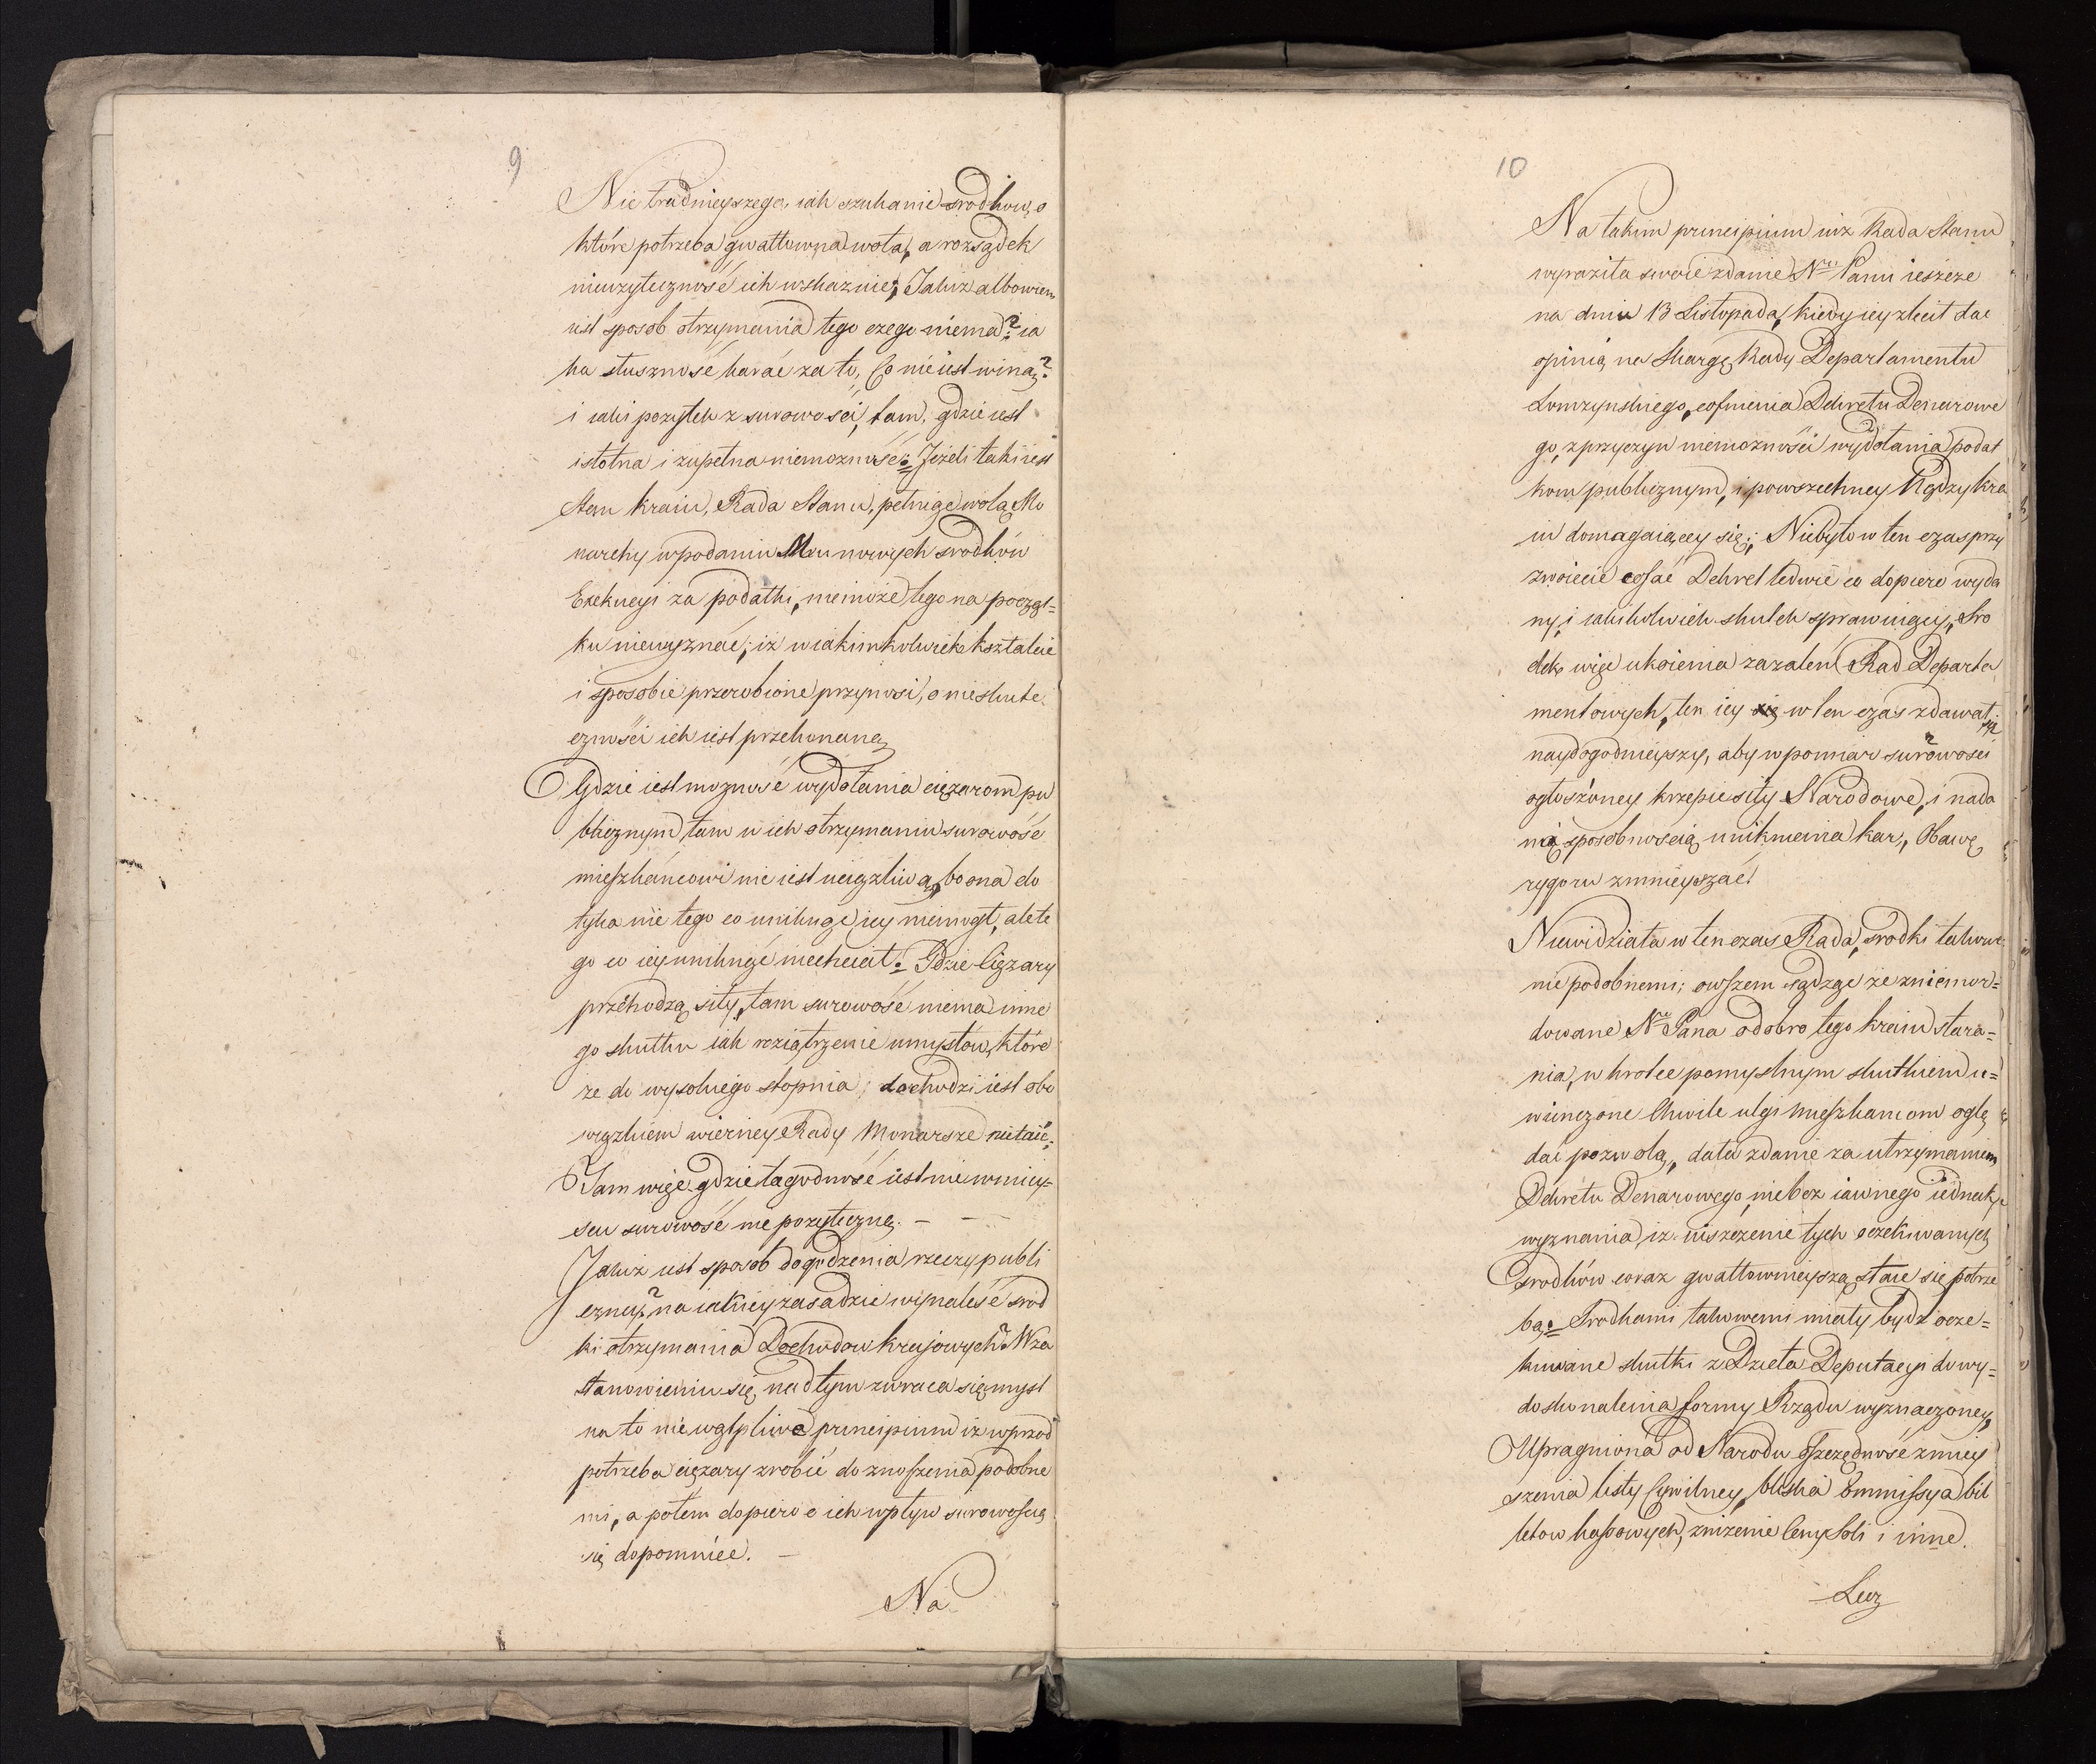 9
Nic trudnieyszego, iak szukanie srodkow, o
które potrzeba gwałtowna woła, a rozsądek
nieużyteczność ich wskazuie; Jakiż albowiem
iest sposob otrzymania tego czego niema? ia
ka słuszność karać za to, Co nie iest winą?
i iaki pożytek z surowości, tam, gdzie iest
istotna i zupełna niemożność; Jeżeli taki iest
stan kraiu, Rada Stanu, pełniąc wolą Mo
narchy w podaniu Mu nowych srodków
Exekucyi za podatki, niemoże tego na począt=
ku niewyznać; iż w iakimkolwiek kształcie
i sposobie przerobione przynosi, o nieskute
czności ich iest przekonaną
Gdzie iest możność wydołania ciężarom pu
blicznym tam w ich otrzymaniu surowość
mieszkańcowi nie iest uciążliwą, bo ona do
tyka nie tego co uniknąć iey niemogł, ale te
go co iey uniknąć niechciał. Gdzie Ciężary
przechodzą siły, tam surowość niema inne
go skutku iak roziątrzenie umysłow, które
że do wysokiego stopnia dochodzi iest obo
wiązkiem wierney Rady Monarsze nietaić.
Tam więc gdzie łagodność iest nie w miey=
scu surowość nie pożyteczną. — — —
Jakiż iest sposob dogodzenia rzeczy publi
czney? na iakiey zasadzie wynaleść srod
ki otrzymania Dochodow krajowych? W za
stanowieniu się, nad tym zwraca się mysl
na to nie wątpliwe principium iż wprzod
potrzeba ciężary zrobić do znoszenia podobne
mi, a potem dopiero o ich wpływ surowością
się dopomnieć. —
Na
10
Na takim principium iuż Rada Stanu
wyraziła swoie zdanie N. Panu ieszcze
na dniu 13 Listopada, kiedy iey zlecił dac
opinią na Skargę Rady Departamentu
Łomzynskiego, cofnienia Dekretu Denarowe
go, z przyczyn niemożności wydołania podat
kom publicznym, i powszechney Nędzy kra
iu domagaiącey się; Niebyło w ten czas przy
zwoicie cofać Dekret ledwie co dopiero wyda
ny, i iakikolwiek skutek sprawuiący, Sro
dek więc ukoienia zażaleń Rad Departa
mentowych, ten iey w ten czas zdawał się
naydogodnieyszy, aby w pomiar surowosci
ogłoszoney krzepić siły Narodowe, i nada
nią sposobnością uniknienia kar, Obawę
rygoru zmnieyszać!
Niewidziała w ten czas Rada, srodki takowe
nie podobnemi; owszem sądząc że zniemor=
dowane N. Pana o dobro tego kraiu stara=
nia, w krotce pomyslnym skutkiem u=
wienczone Chwile ulgi mieszkancom oglą
dać pozwolą, dała zdanie za utrzymaniem
Dekretu Denarowego, nie bez iawnego iednak
wyznania, iż uiszczenie tych oczekiwanych
srodków coraz gwałtownieyszą staie się potrze
bą. Srodkami takowemi miały bydź ocze=
kiwane skutki z Dzieła Deputacyi do wy=
doskonalenia formy Rządu wyznaczoney,
Upragniona od Narodu Oszczędność zmiey
szenia listy Cywilney, bliska Emmissya bil
letow kassowych, zniżenie Ceny Soli i inne.
Lecz